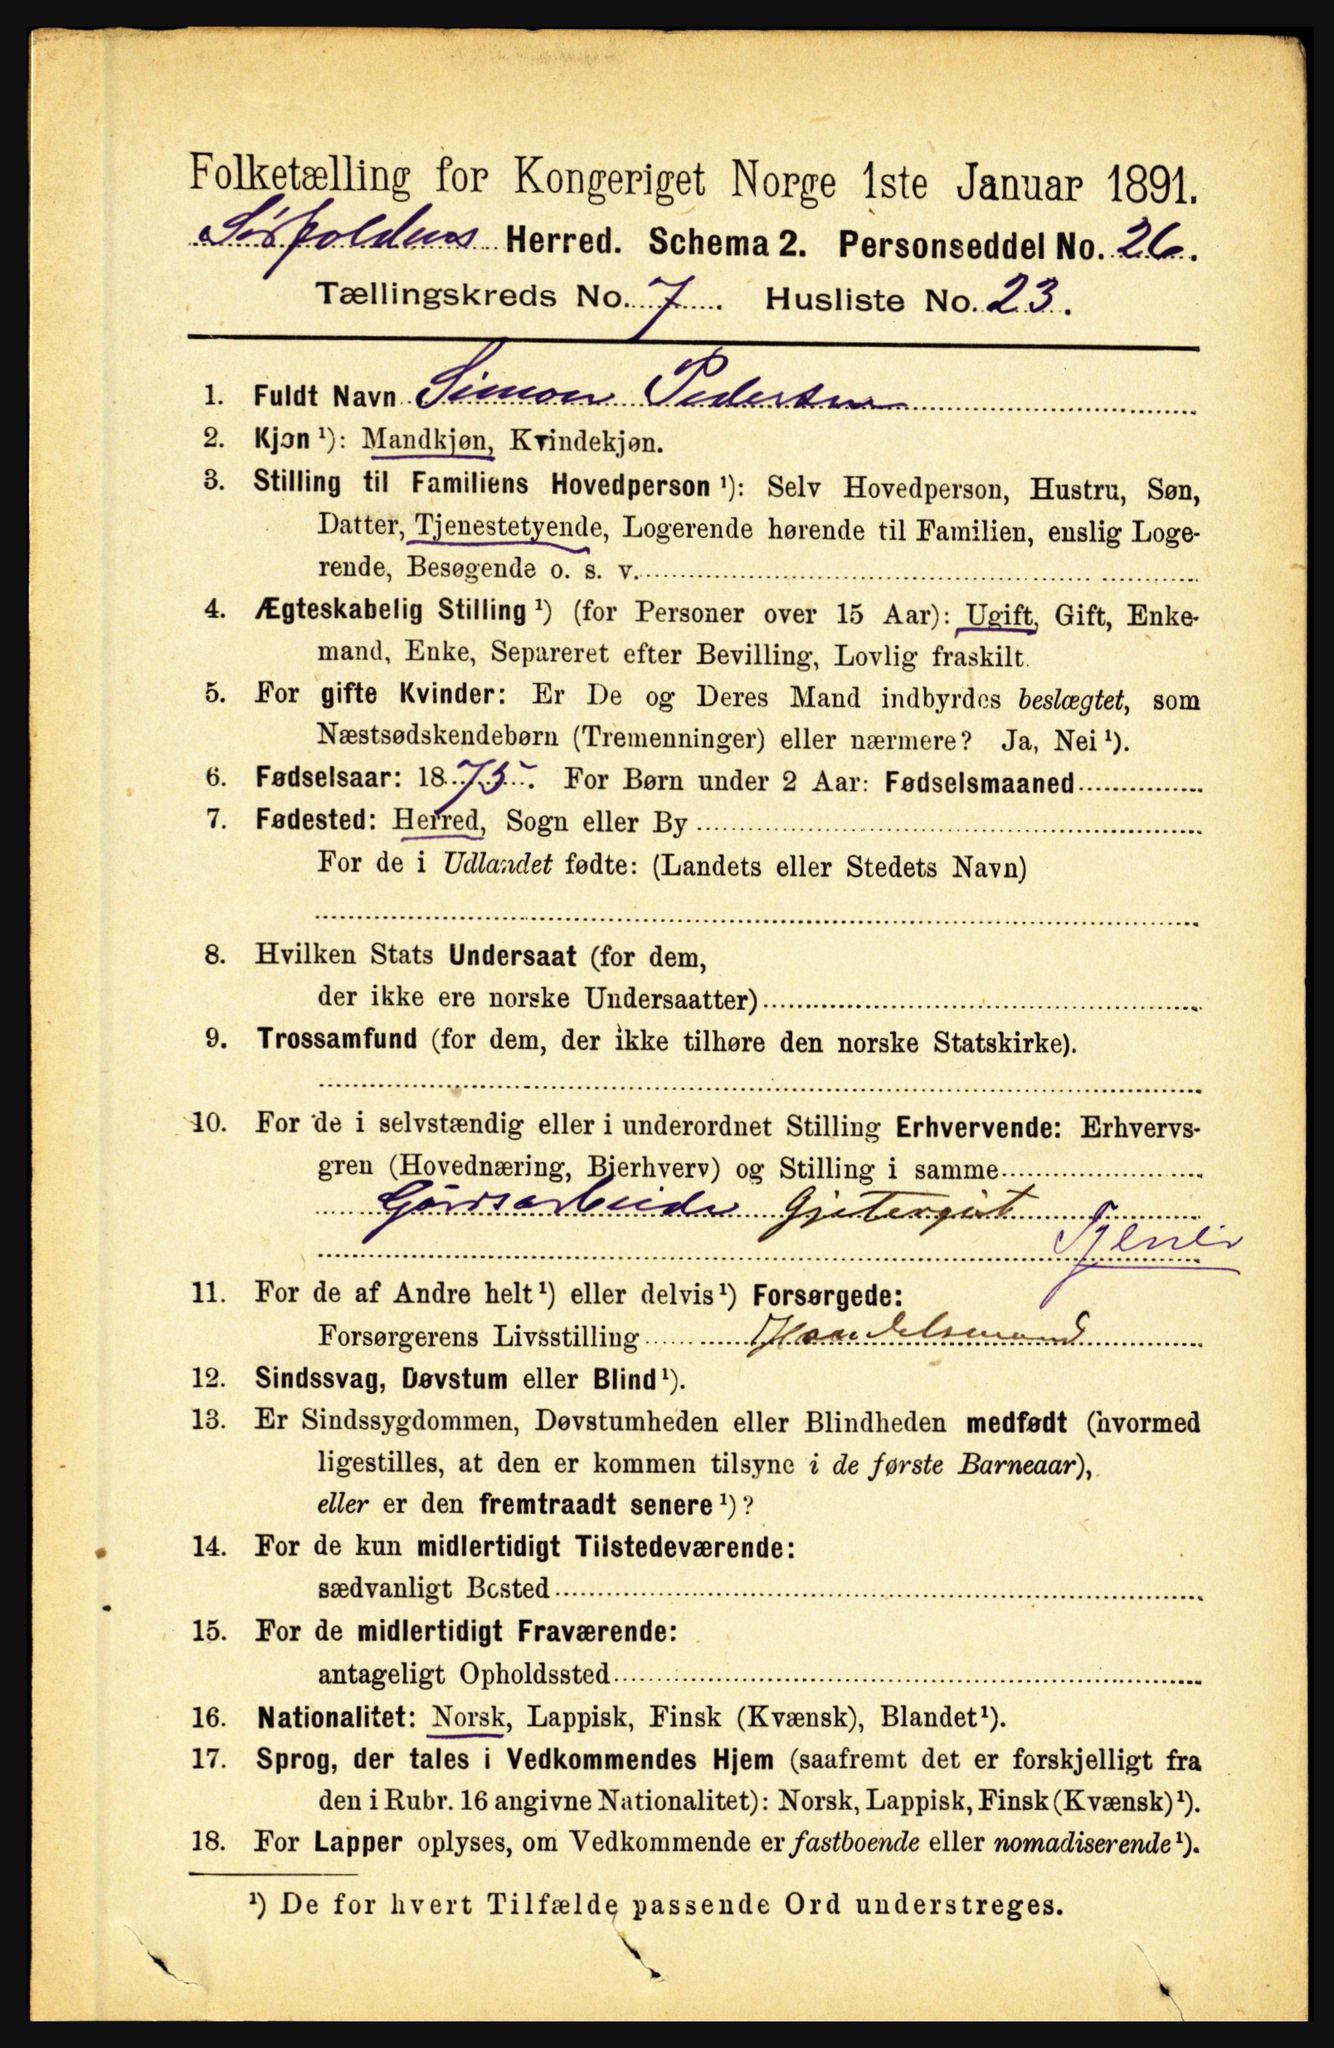 Folketælling for Kongeriget Norge 1ste Januar 1891.
Sørfoldens Herred. Schema 2. Personseddel No. 26.
Tællingskreds No. 7. Husliste No. 23.
1. Fuldt Navn Simon Pedersen
2. Kjøn ¹): Mandkjøn, Kvindekjøn.
3. Stilling til Familiens Hovedperson ¹): Selv Hovedperson, Hustru, Søn,
Datter, Tjenestetyende, Logerende hørende til Familien, enslig Loge-
rende, Besøgende o. s. v.
4. Ægteskabelig Stilling ¹) (for Personer over 15 Aar): Ugift, Gift, Enke-
mand, Enke, Separeret efter Bevilling, Lovlig fraskilt.
5. For gifte Kvinder: Er De og Deres Mand indbyrdes beslægtet, som
Næstsødskendebørn (Tremenninger) eller nærmere? Ja, Nei ¹).
6. Fødselsaar: 1875. For Børn under 2 Aar: Fødselsmaaned
7. Fødested: Herred, Sogn eller By
For de i Udlandet fødte: (Landets eller Stedets Navn)
8. Hvilken Stats Undersaat (for dem,
der ikke ere norske Undersaatter)
9. Trossamfund (for dem, der ikke tilhøre den norske Statskirke).
10. For de i selvstændig eller i underordnet Stilling Erhvervende: Erhvervs-
gren (Hovednæring, Bierhverv) og Stilling i samme
Gårdsarbeide Gjetergut
Tjener
11. For de af Andre helt ¹) eller delvis ¹) Forsørgede:
Forsørgerens Livsstilling Handelsmand
12. Sindssvag, Døvstum eller Blind ¹).
13. Er Sindssygdommen, Døvstumheden eller Blindheden medfødt (hvormed
ligestilles, at den er kommen tilsyne i de første Barneaar),
eller er den fremtraadt senere ¹)?
14. For de kun midlertidigt Tilstedeværende:
sædvanligt Bosted
15. For de midlertidigt Fraværende:
antageligt Opholdssted
16. Nationalitet: Norsk, Lappisk, Finsk (Kvænsk), Blandet ¹).
17. Sprog, der tales i Vedkommendes Hjem (saafremt det er forskjelligt fra
den i Rubr. 16 angivne Nationalitet): Norsk, Lappisk, Finsk (Kvænsk) ¹).
18. For Lapper oplyses, om Vedkommende er fastboende eller nomadiserende ¹).
¹) De for hvert Tilfælde passende Ord understreges.